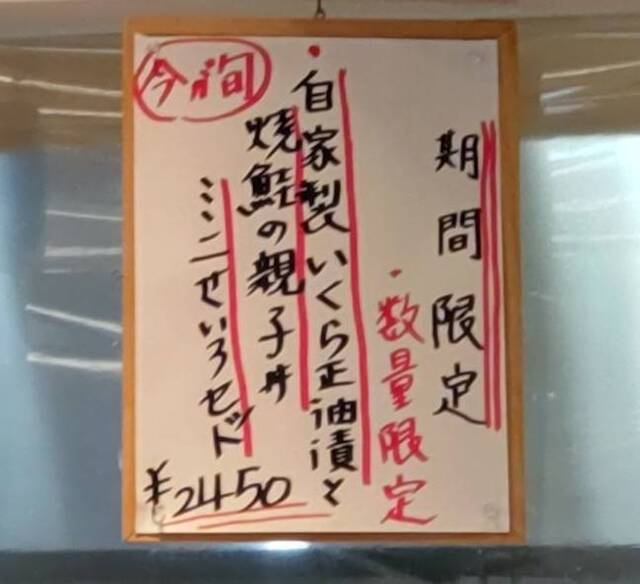 期間限定
・数量限定
・自家製いくら正油漬と
焼鮭の親子丼
ミニせいろセット
¥2450
今が旬